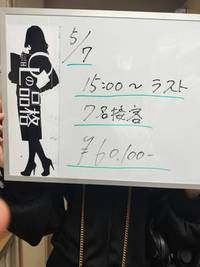 5/7
15:00～ ラスト
7名接客
¥60,100-
Gの品格